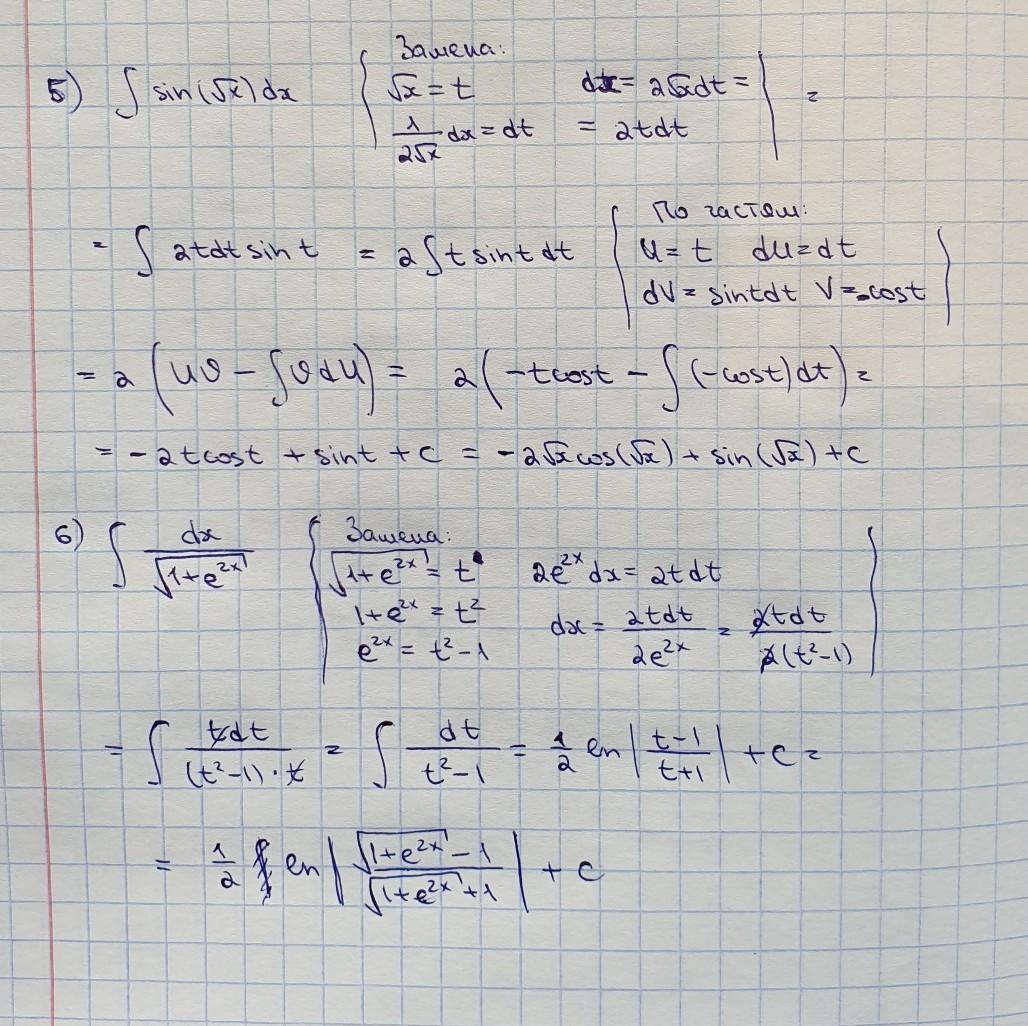 5) ∫ sin(√x)dx { Замена:
√x = t dx = 2√x dt =
1/(2√x) dx = dt = 2tdt | =
= ∫ 2tdt sin t = 2∫t sint dt { По частям:
u = t du = dt
dV = sintdt V = -cost |
= 2 (uv - ∫vdu) = 2(-tcost - ∫(-cost)dt) =
= -2tcost + sint + c = -2√x cos(√x) + sin(√x) + c
6) ∫ dx/√(1+e^(2x)) { Замена:
√(1+e^(2x)) = t 2e^(2x) dx = 2tdt
1+e^(2x) = t²
e^(2x) = t²-1 dx = 2tdt/(2e^(2x)) = 2tdt/(2(t²-1)) |
= ∫ tdt/((t²-1)·t) = ∫ dt/(t²-1) = 1/2 ln|(t-1)/(t+1)| + c =
= 1/2 ln|(√(1+e^(2x)) - 1)/(√(1+e^(2x)) + 1)| + c